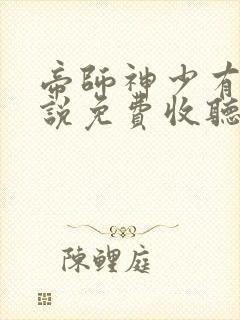 帝師神少有
說免費收聽
陳鯉庭